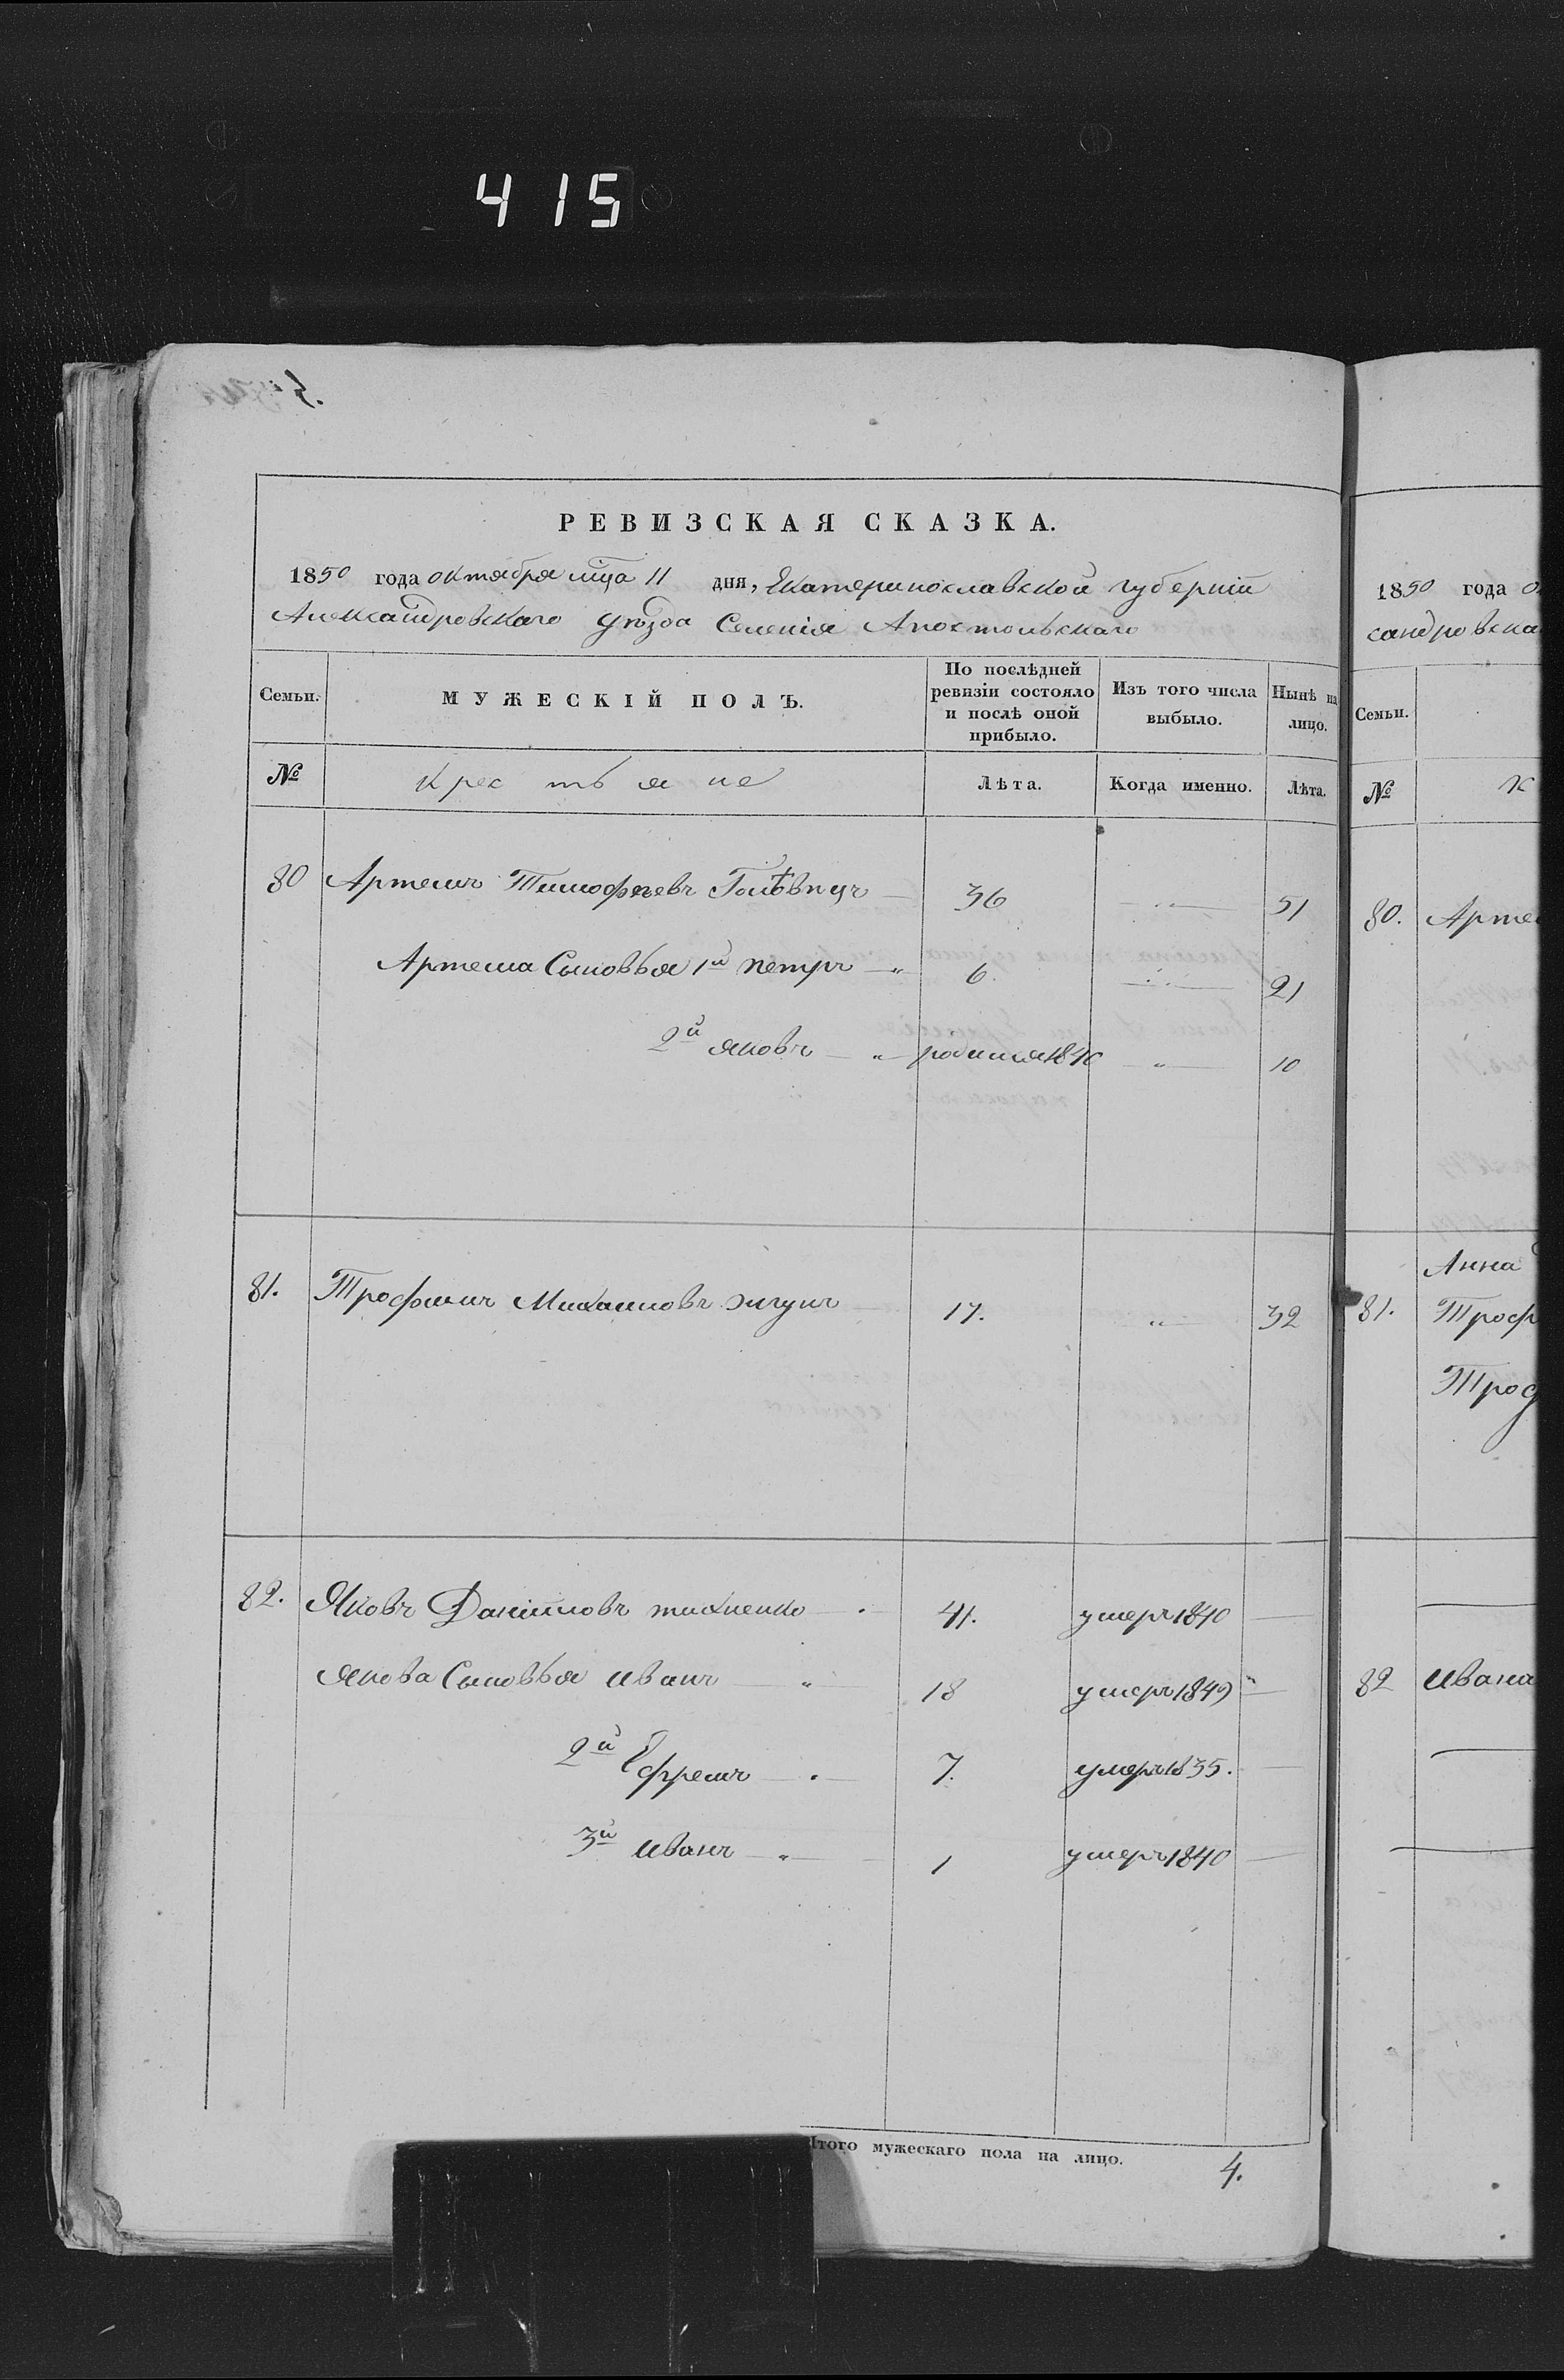 415
РЕВИЗСКАЯ СКАЗКА.
1850 года октября мца 11 дня, Екатеринославской губернiи
Александровскаго уѣзда Селенiя Апостольскаго
Семьи. МУЖЕСКIЙ ПОЛЪ. По послѣдней ревизiи состояло и послѣ оной прибыло. Изъ того числа выбыло. Нынѣ на лицо.
№ Крестьяне Лѣта. Когда именно. Лѣта.
80 Артемъ Тимофѣевъ 36 51
Артема Сыновья 1й Петръ 6. 21
2й Яковъ родился 1840 10
81. Трофимъ Михаиловъ 17. 32
82. Яковъ Данiиловъ Тихненко 41. умеръ 1840
Якова Сыновья Иванъ 18 умеръ 1849
2й Ефремъ 7. умеръ 1835.
3й Иванъ 1 умеръ 1840
Итого мужескаго пола на лицо. 4.
1850 года
сандровска
Семьи.
№ К
80. Арте
Анна
81. Троф
Троф
82 Ивана